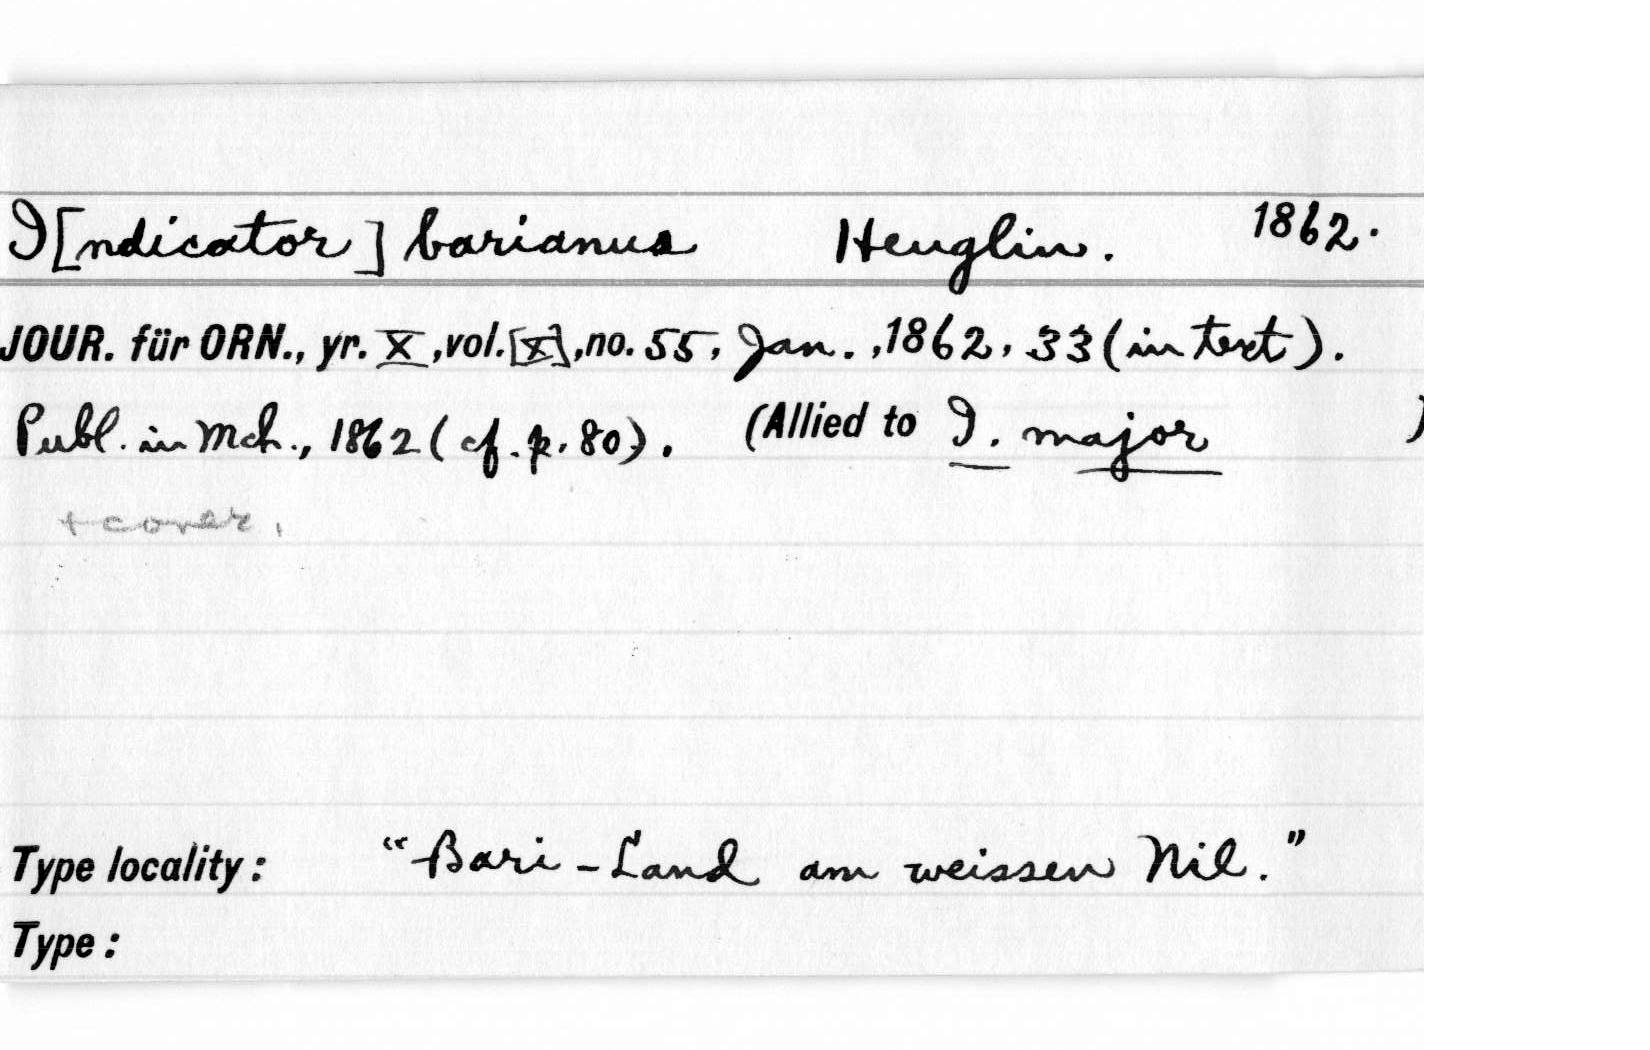 I[ndicator] barianus Heuglin. 1862.
JOUR. für ORN., yr. X, vol. [X], no. 55, Jan., 1862, 33 (in text).
Publ. in Mch., 1862 (cf. p. 80). (Allied to I. major )
+ cover.
Type locality: "Bari-Land am weissen Nil."
Type: